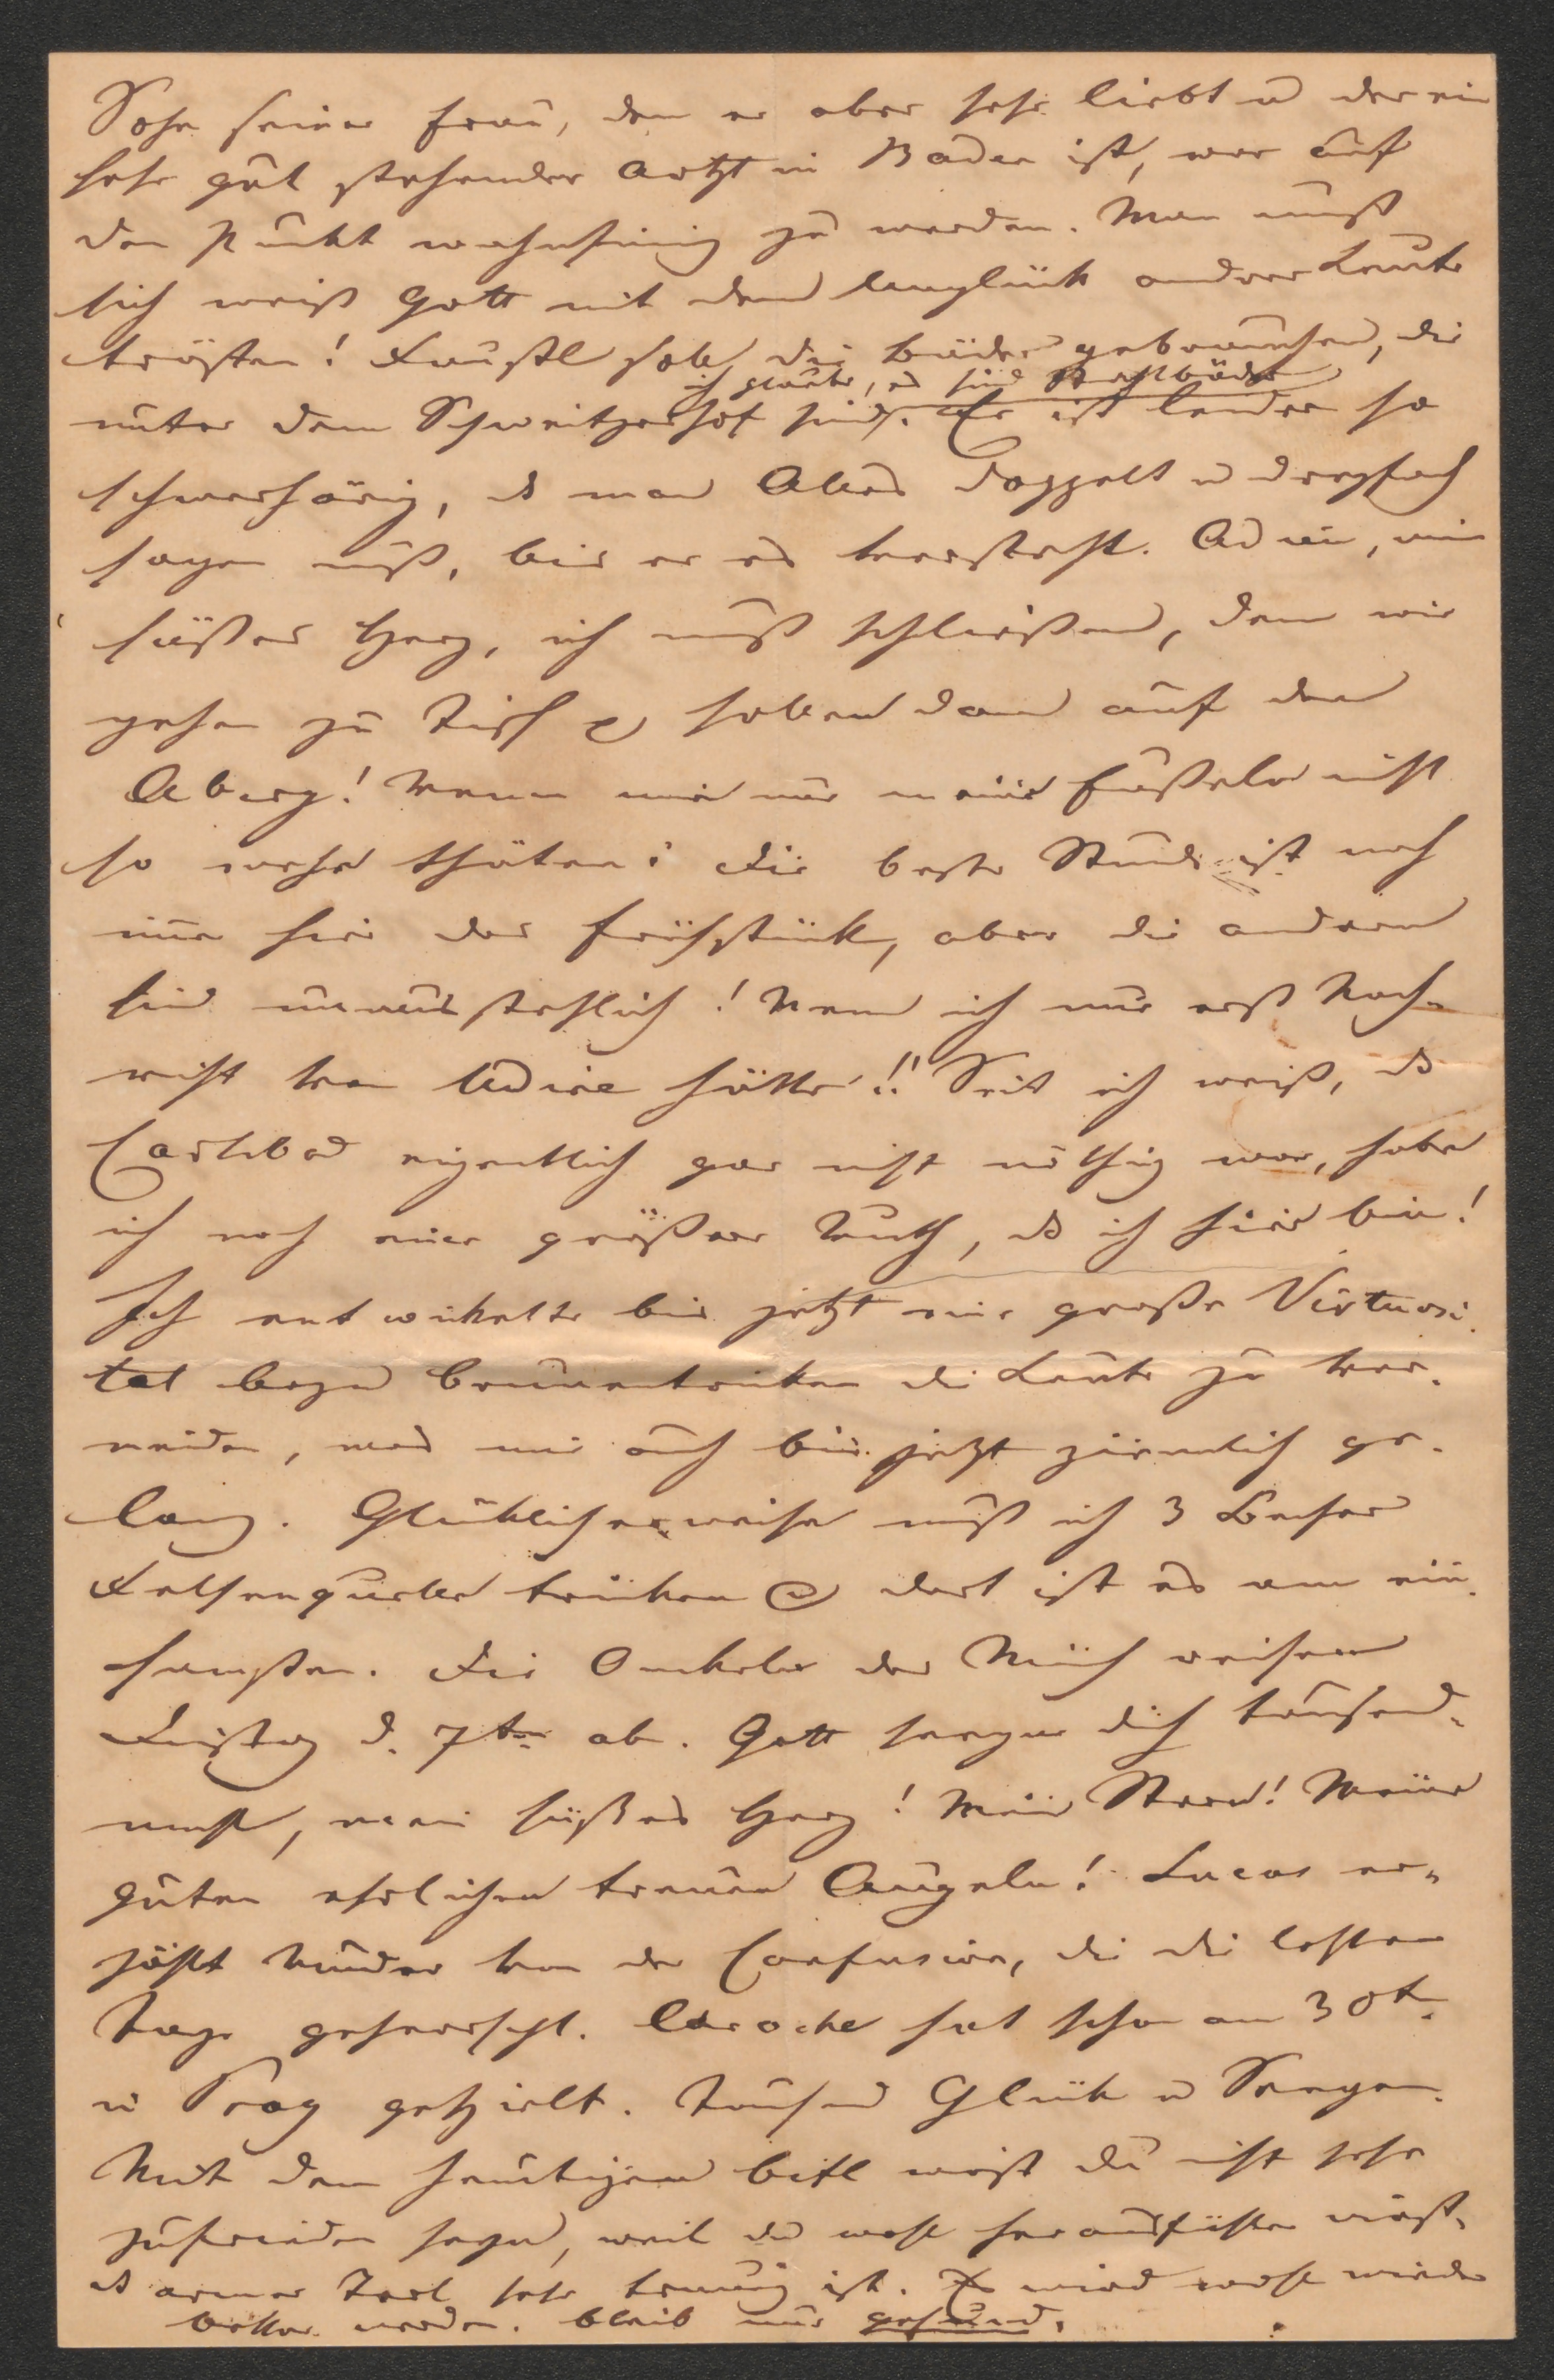 Sohn seiner Frau, den er aber sehr liebt u der ein
sehr gut stehender Artzt in Baden ist, war auf
den Punkt wahnsinig zu werden. Man muß
sich weiß Gott mit dem Unglück andrer Leute
trösten! Faustl soll die Bäder gebrauchen, die
ich glaube, es sind Stahlbäder
unter dem Schweitzerhof sind. Er ist leider so
schwerhörig, ds man Alles doppelt u dreyfach
sagen muß, bis er es versteht. Adieu, mein
süßes Herz, ich muß schließen, denn wir
gehen zu Tisch & sollen dann auf den
Aberg! Wenn mir nur meine Füßeln nicht
so wehe thäten! Die beste Stunde ist noch
immer hier das Frühstück, aber die andern
sind unausstehlich! Wenn ich nur erst Nach-
richt von Udine hätte!! Seit ich weiß, ds
Carlsbad eigentlich gar nicht nöthig war, habe
ich noch eine größere Wuth, ds ich hier bin!
Ich entwickelte bis jetzt eine große Virtuosi-
tät beym Brunnentrinken die Leute zu ver-
meiden, was mir auch bis jetzt ziemlich ge-
lang. Glücklicherweise muß ich 3 Becher
Felsenquelle trinken & dort ist es am ein-
samsten. Die Onkeln der Münch reisen
Dinstag d. 7ten ab. Gott seegne dich tausend-
mahl, mein süßes Herz! Mein Stern! Meine
guten ehrlichen treuen Augeln! Lucas er-
zählt Wunder von der Confusion, die die letzten
Tage geherrscht. Laroche hat schon am 30t.
in Prag gespielt. Tausend Glück u Seegen.
Mit dem heutigen Briefl wirst du nicht sehr
zufrieden seyn, weil du wohl herausfühlen wirst,
ds armer Zerl sehr traurig ist. Es wird wohl wieder
besser werden. Bleib nur gesund.